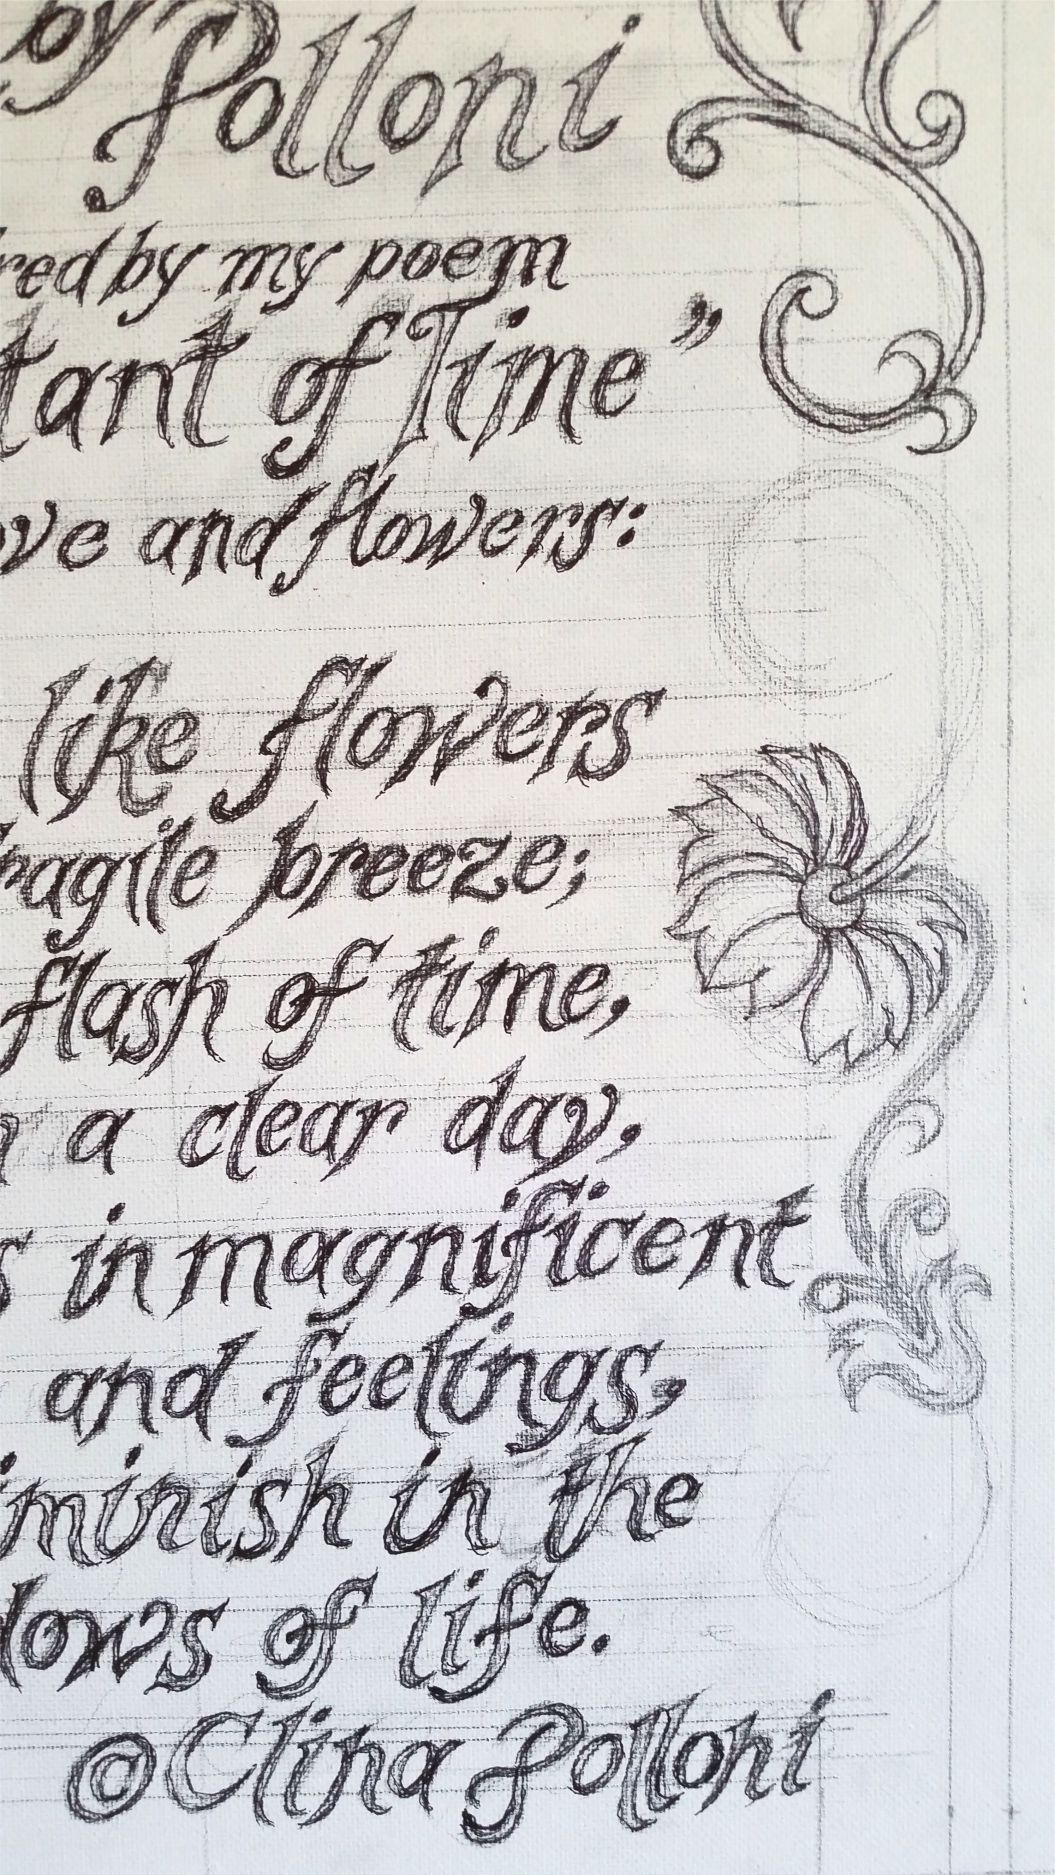 by
Polloni
red by my poem
tant of Time”
ove and flowers:
like flowers
ragile breeze;
flash of time,
a clear day,
s in magnificent
and feelings,
iminish in the
dows of life.
©Clina Polloni